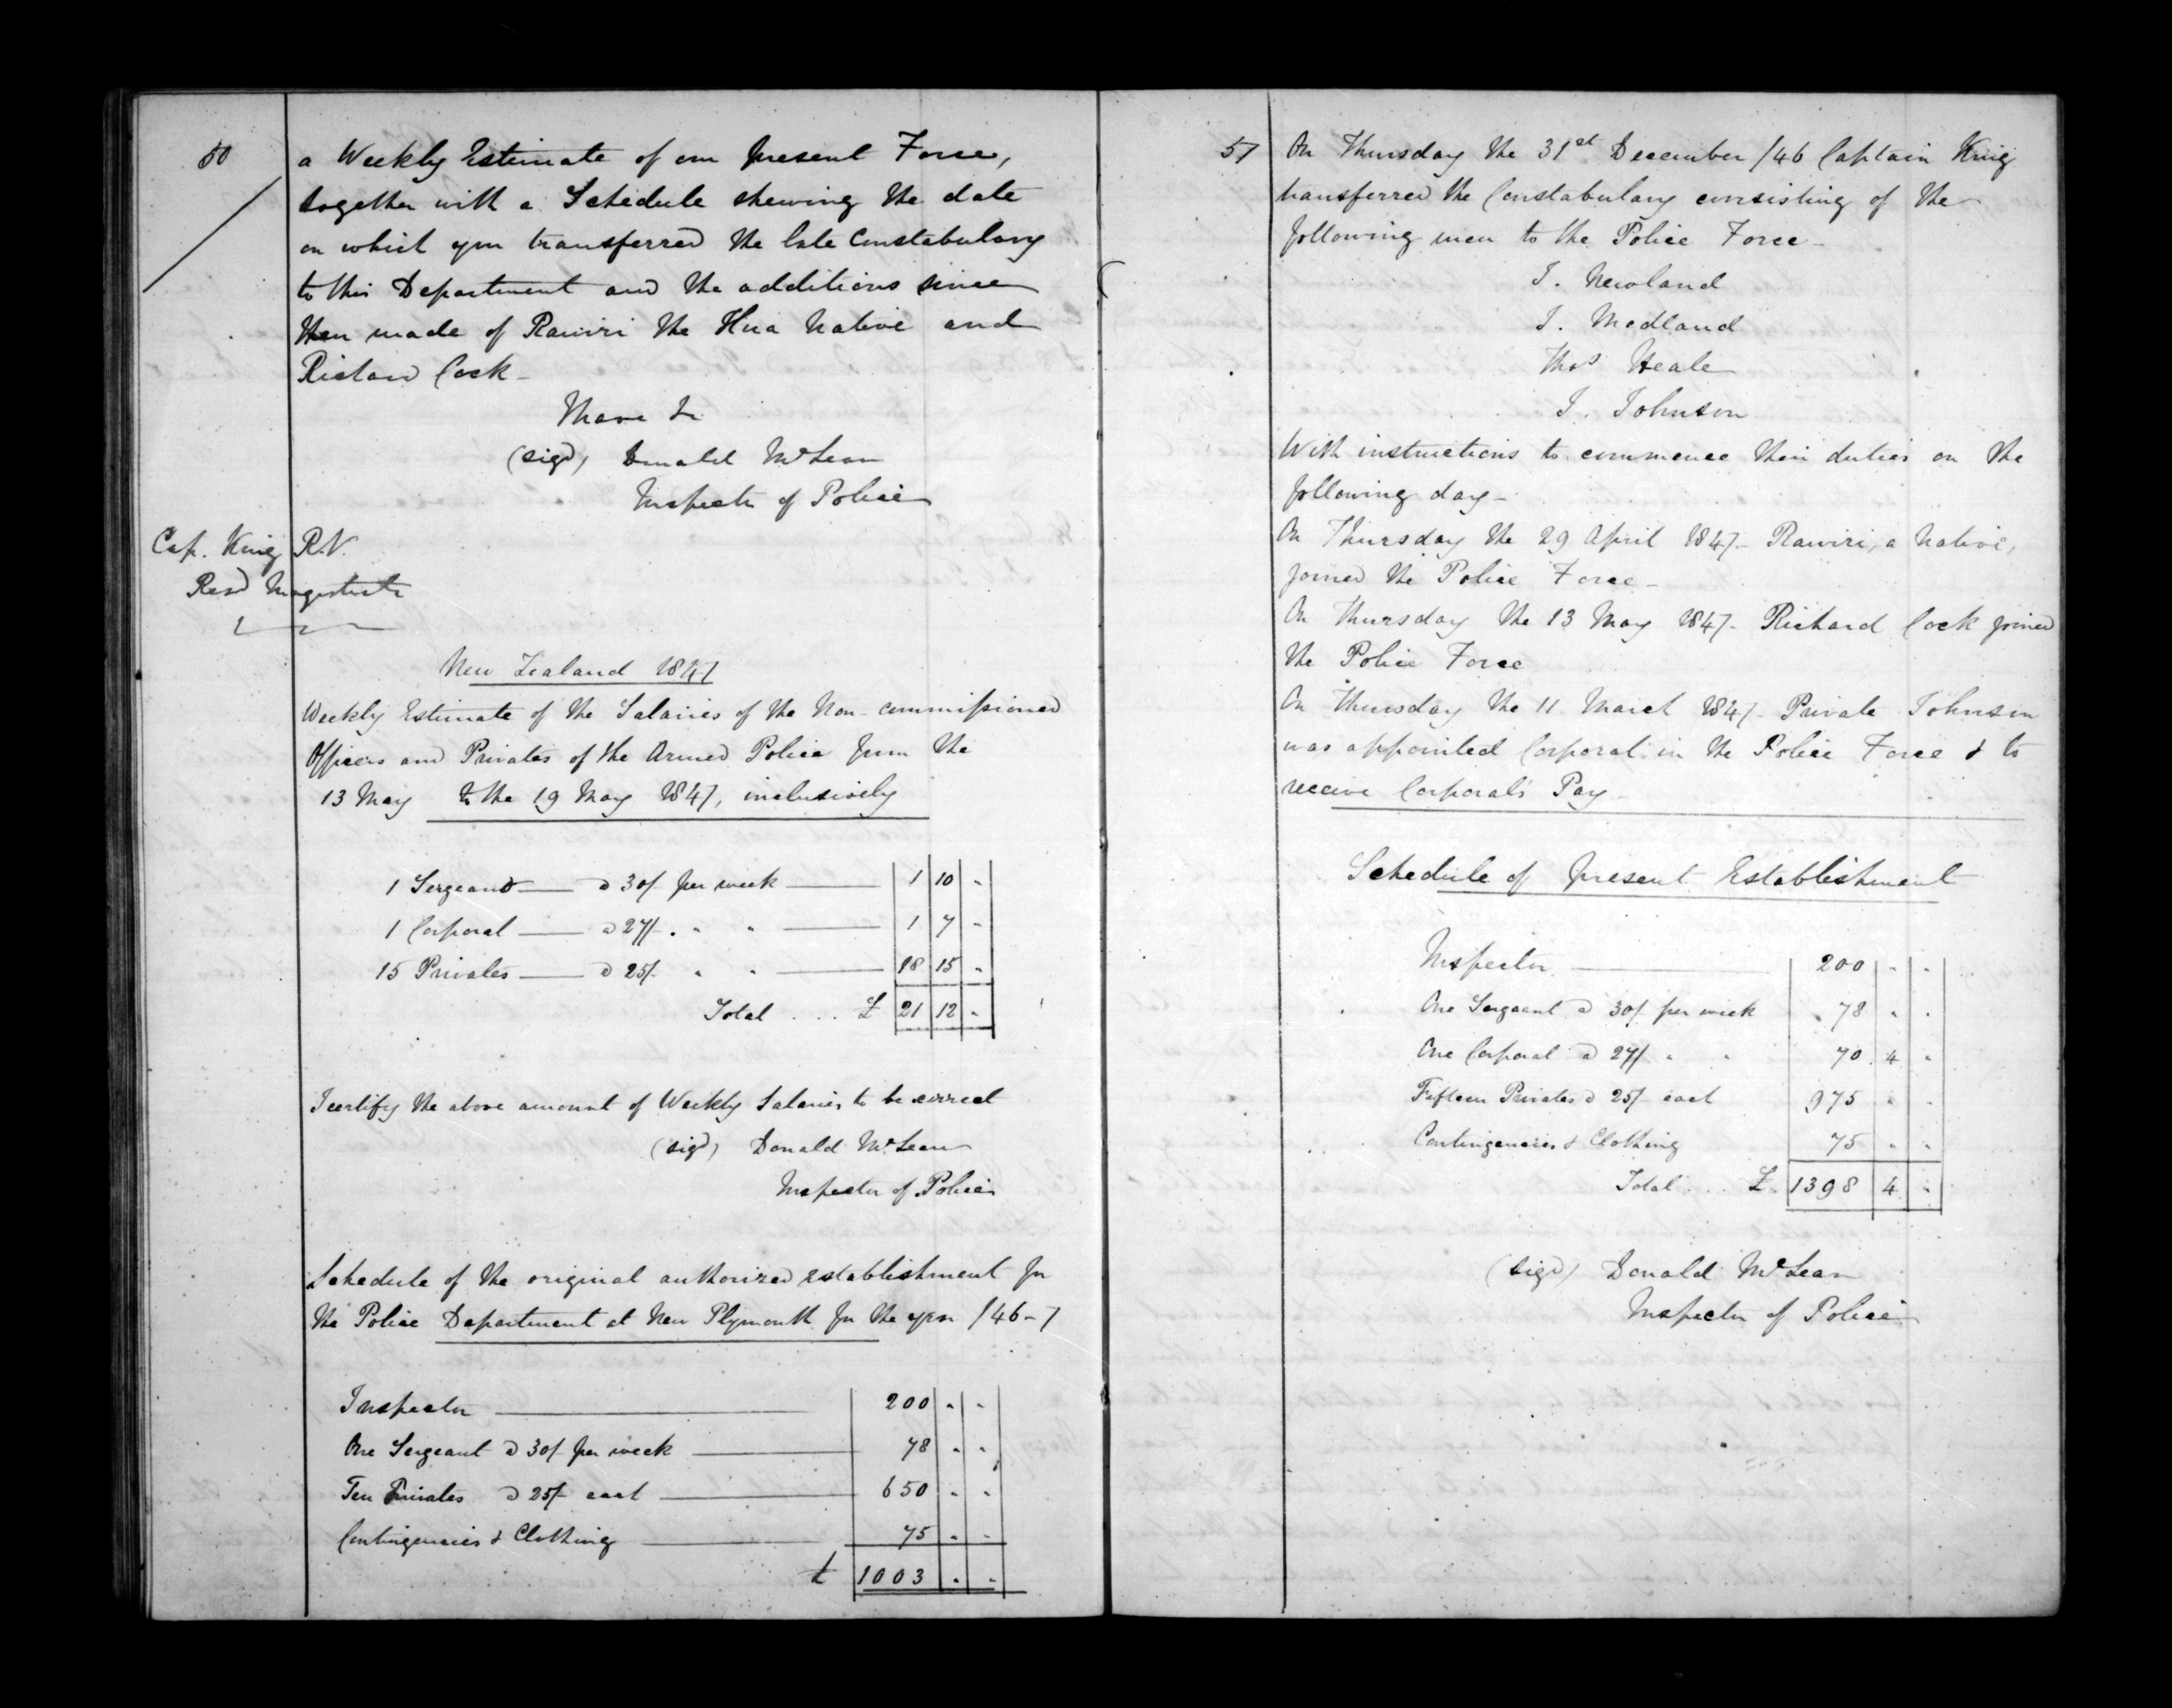 50
a Weekly Estimate of our present Force,
together with a Schedule shewing the date
on which you transferred the late Constabulary
to this Department and the additions since
then made of Rawiri the Hua Native and
Richard Cock -
I have &c
(sigd) Donald McLean
Inspector of Police
Cap. King R.N.
Resd Magistrate
New Zealand 1847
Weekly Estimate of the Salaries of the Non-commissioned
Officers and Privates of the Armed Police from the
13 May to the 19 May 1847, inclusively
1 Sergeant — @ 30/- per week — 1 10 -
1 Corporal — @ 27/- . " " — 1 7 -
15 Privates — @ 25/- " " — 18 15 -
Total .... £ 21 12 -
I certify the above amount of Weekly Salaries to be correct
(sigd) Donald McLean
Inspector of Police
Schedule of the original authorized establishment for
the Police Department at New Plymouth for the year /46-7
Inspector — 200 - -
One Sergeant @ 30/- per week — 78 - -
Ten Privates @ 25/- each — 650 - -
Contingencies & Clothing — 75 - -
£ 1003 - -
51
On Thursday the 31st December /46 Captain King
transferred the Constabulary consisting of the
following men to the Police Force -
J. Newland
J. Medland
Thos Heale
J. Johnson
With instructions to commence their duties on the
following day -
On Thursday the 29 April 1847 - Rawiri, a Native,
joined the Police Force -
On Thursday the 13 May 1847 - Richard Cock joined
the Police Force
On Thursday the 11 March 1847 - Private Johnson
was appointed Corporal in the Police Force & to
receive Corporal's Pay -
Schedule of present Establishment
Inspector — 200 - -
One Sergeant @ 30/- per week 78 - -
One Corporal @ 27/- " " 70 4 -
Fifteen Privates @ 25/- each 975 - -
Contingencies & Clothing 75 - -
Total ... £ 1398 4 -
(sigd) Donald McLean
Inspector of Police